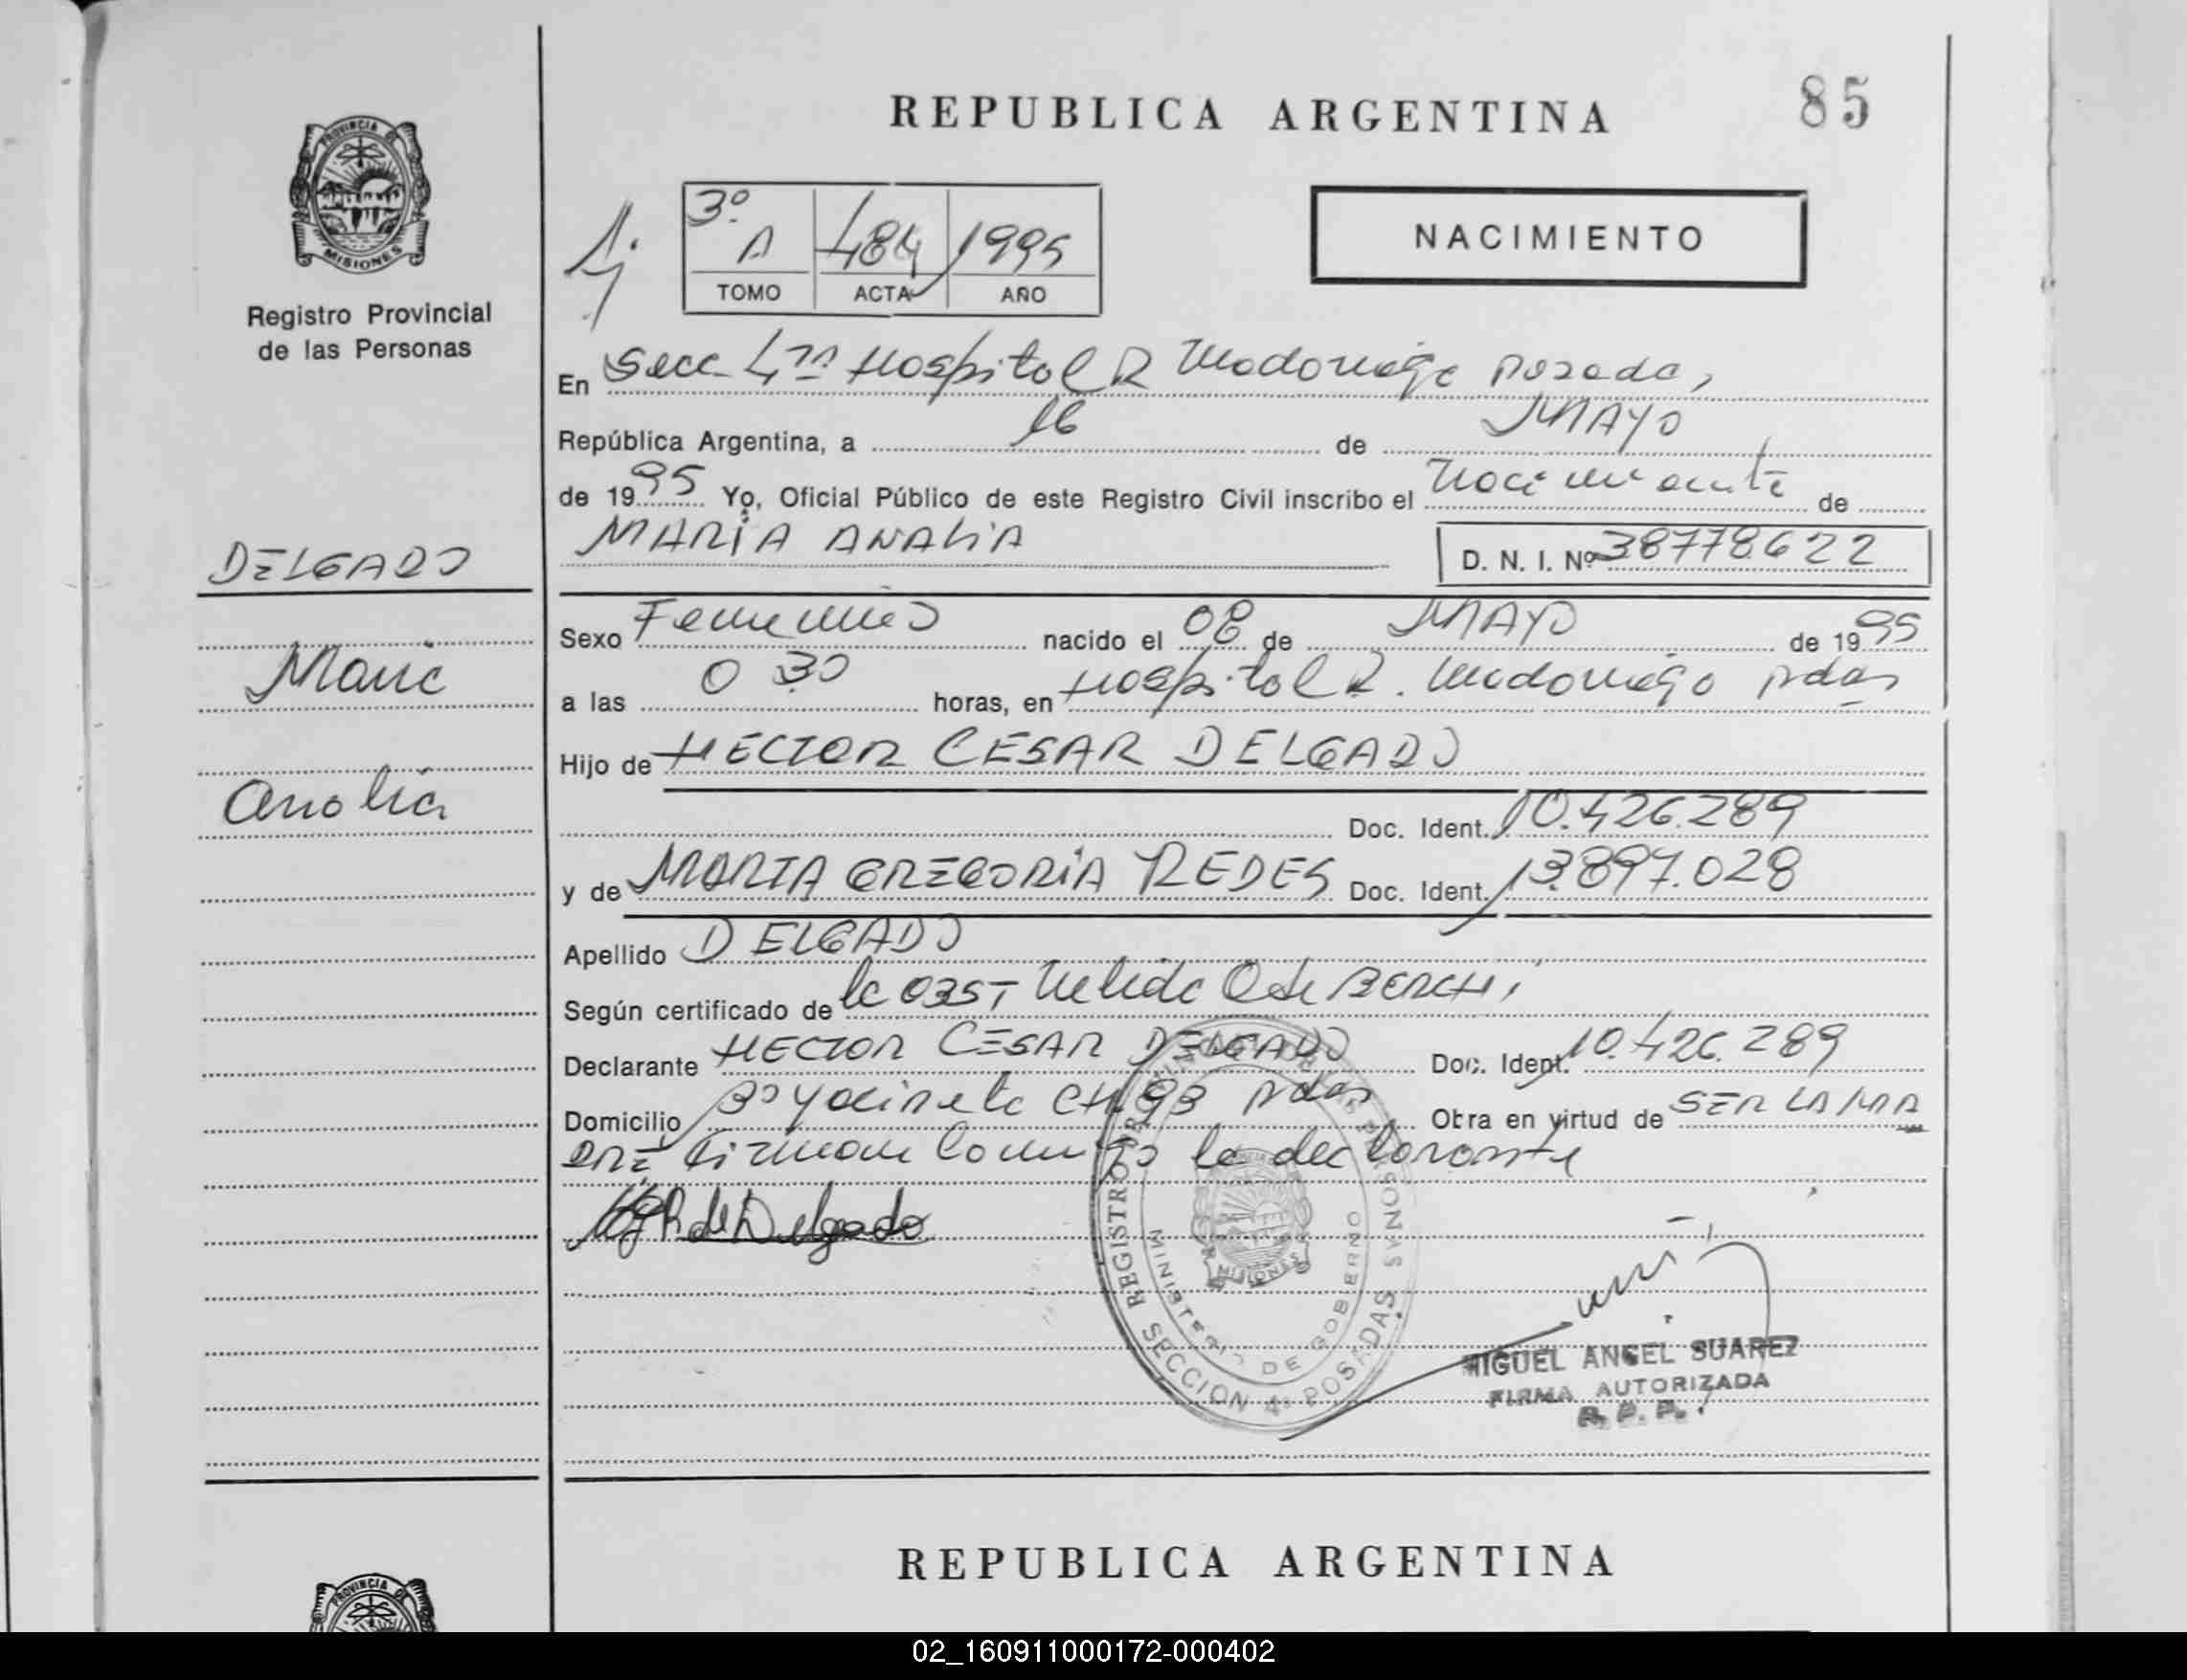 REPUBLICA ARGENTINA
85
PROVINCIA DE
MISIONES
Registro Provincial
de las Personas
3º A 484 1995
TOMO ACTA AÑO
NACIMIENTO
En Secc 4ta Hospital R Madariaga Posadas,
República Argentina, a 16 de MAYO
de 1995 Yo, Oficial Público de este Registro Civil inscribo el Nacimiento de
MARIA ANALIA
D. N. I. Nº 38778622
DELGADO
Sexo Femenino nacido el 08 de MAYO de 1995
Maria
a las 0 30 horas, en Hospital R. Madariaga pdas
Hijo de HECTOR CESAR DELGADO
Analia
Doc. Ident. 10.426.289
y de MARTA GREGORIA REDES Doc. Ident. 13.897.028
Apellido DELGADO
Según certificado de la OBST Nelida
Declarante HECTOR CESAR DELGADO Doc. Ident. 10.426.289
Domicilio Bº Yacireta CH 93 Pdas Otra en virtud de SER LA MA
DRE firman Conmigo la declarante
de Delgado
REGISTRO PROVINCIAL DE LAS PERSONAS
MINISTERIO DE GOBIERNO
MISIONES
SECCION 4ª POSADAS
MIGUEL ANGEL SUAREZ
FIRMA AUTORIZADA
R. P. P.
REPUBLICA ARGENTINA
PROVINCIA DE
02_160911000172-000402